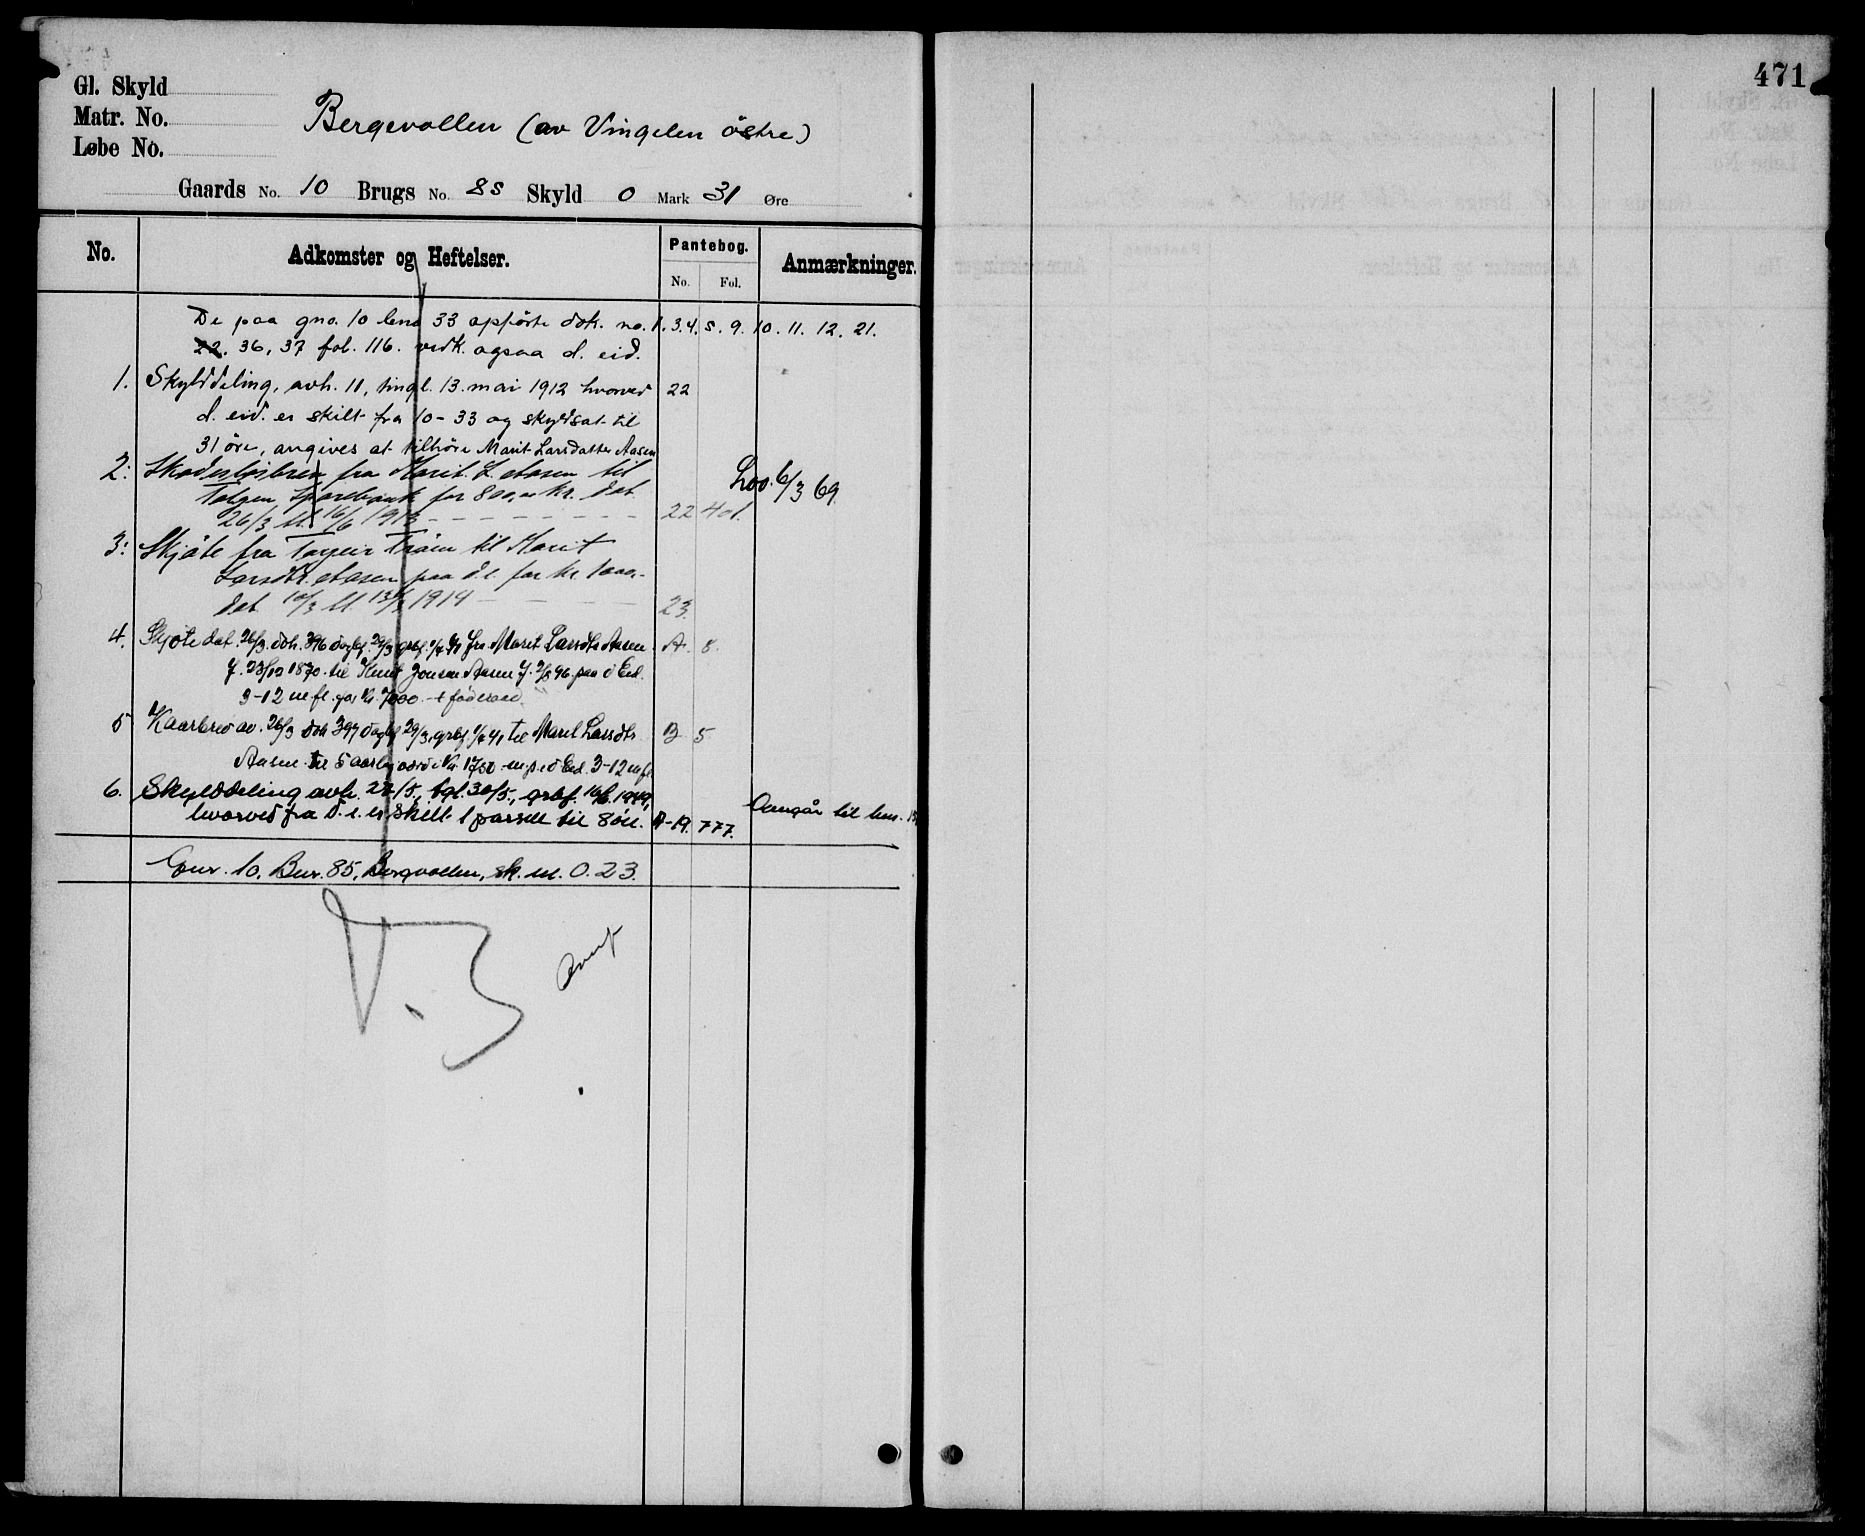 471
Gl. Skyld
Matr. No.
Løbe No.
Bergevollen (av Vingelen østre)
Gaards No. 10 Brugs No. 85 Skyld 0 Mark 31 Øre
No. Adkomster og Heftelser. Pantebog. Anmærkninger.
No. Fol.
De paa gno. 10 bno 33 opførte dok. no. 1. 3. 4. 5. 9. 10. 11. 12. 21.
22. 36, 37 fol. 116. vedk. ogsaa d. eid.
1. Skylddeling, avh. 11, tingl. 13. mai 1912 hvorved 22
d. eid. er skilt fra 10-33 og skyldsat til
31 øre, angives at tilhøre Marit Larsdatter Aasen
2. Skadesløsbrev fra Marit L. Aasen til
Tolgen Sparebank for 800,- kr. dat.
26/3 tl. 16/6 1913 22 401. 6/3 69.
3. Skjøte fra Trøen til Marit
Larsdtr. Aasen paa d.e. for kr. 1000.-
dat 10/3 tl. 1914 23.
4. Skjøte dat. 26/3 dok. 396 dagbf. 29/3 grbf. fra Marit Larsdtr Aasen A. 8.
f. 23/12 1870. til Knut Jonsen Aasen f. 96. paa d Eid.
3-12 m.fl. for kr. 7000. + føderaad.
5 Kaarbrev av. 26/3 dok 397 dagbf 29/3, grbf. til Marit Larsdtr B 5
Aasen. til 5 aarlig værdi kr. 1750 m.p. i d Eid. 3-12 m.fl.
6. Skylddeling avh. 27/5, tgl. 30/5, grbf. 10/6. 1949,
hvorved fra d. e. er skilt 1 parsell til 8 øre. A-19. 777. Overgår til bnr.
Gnr. 10. Bnr. 85, Bergvollen, sk. m. 0.23.